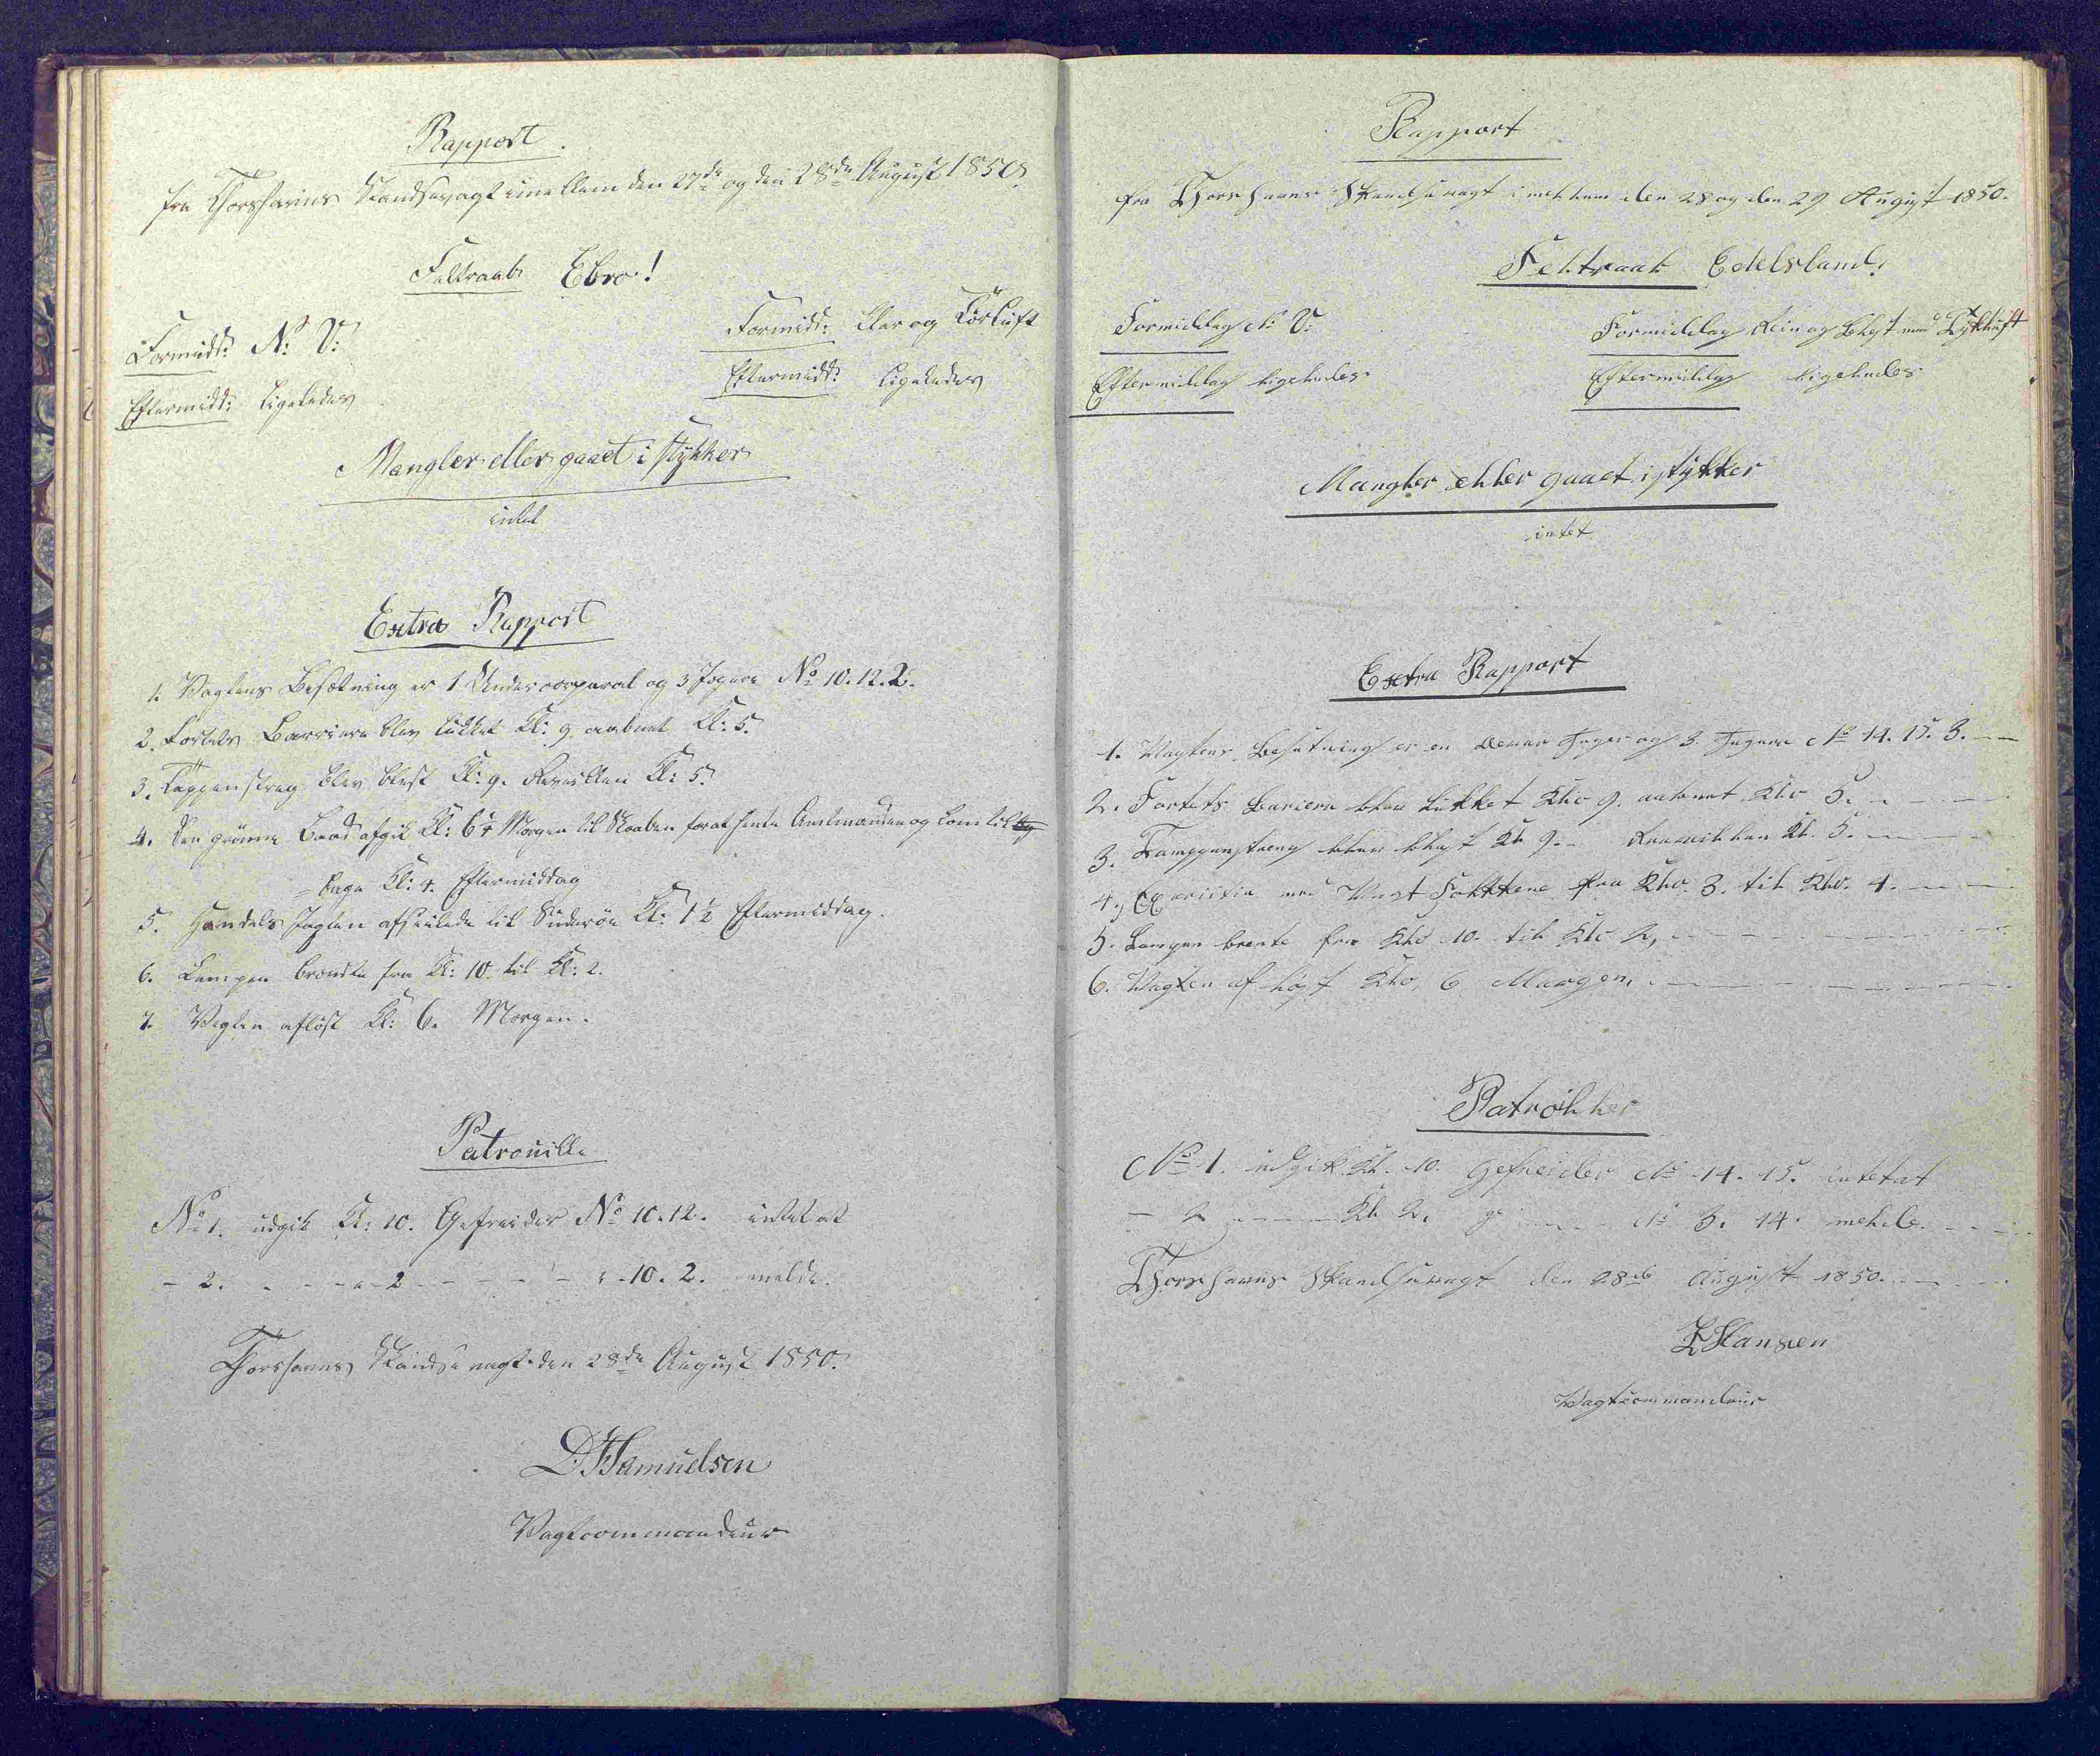 Rapport.
fra Thorshavns Skandsevagt imellem den 27de og den 28de August 1850.
Feltraab Ebro!
Formidd: N: V:
Formidd: klar og Tör Luft
Eftermidd: ligeledes
Eftermidd: ligeledes
Mangler eller gaaet i stykker
intet
Extra Rapport
1. Vagtens Besætning er 1 Undercorporal og 3 Jægere No 10. 12. 2.
2. Fortets Barriere blev lukket Kl: 9 aabnet Kl: 5.
3. Tappenstreg blev blæst Kl: 9. Reveillen Kl: 5.
4. Den grönne Baad afgik Kl: 6 Morgen til Skaalen for at hente Amtmanden og kom til
-bage Kl: 4. Eftermiddag
5. Handels Jagten afseilede til Suderöe Kl: 1½ Eftermiddag.
6. Lampen brændte fra Kl: 10 til Kl: 2.
7. Vagten aflöst Kl: 6. Morgen.
Patrouille
No 1. udgik Kl: 10. Gefreider No 10. 12. intet at
- 2. - - - - 2 - - - - - - 10. 2. melde.
Thorshavns Skandsevagt den 28de August 1850.
D. Samuelsen
Vagtcommandeur
Rapport
fra Thorshavns Skandsevagt imellem den 28 og den 29 August 1850.
Feltraab Edelsland!
Formiddag N: V:
Formiddag Stein og Blæst med Tyk Luft
Eftermiddag ligeledes
Eftermiddag ligeledes
Mangler eller gaaet i stykker
intet
Extra Rapport
1. Vagtens Besætning er en Jæger og 3 Jægere No 14. 15. 3.
2. Fortets Bariere blev lukket Klo 9. aabnet Klo 5.
3. Tamppenstreg blev blæst Kl 9. Reveillen Kl. 5.
4. Exersitie med Vagt Folkene fra Klo. 3. til Klo. 4.
5. Lampen brente fra Klo 10 til Klo 2,
6. Vagten af løgst Klo, 6 Morgen,
Patroller
No 1. udgik Kl. 10. Gefreider No 14. 15. intet at
- 2 - - - Kl 2. - - - No 3. 14. melde.
Thorshavns Skandsevagt den 28de August 1850.
Hansen
Vagtcommandeur